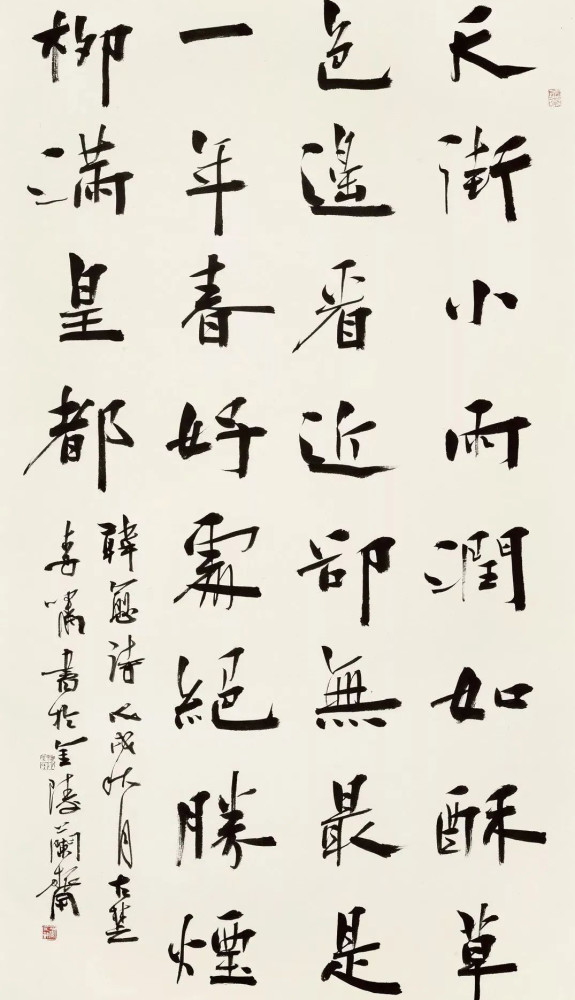 天街小雨潤如酥草
色遙看近卻無最是
一年春好處絕勝煙
柳滿皇都
韓愈詩 戊戌秋月 古楚
李啸書於金陵蘭齋